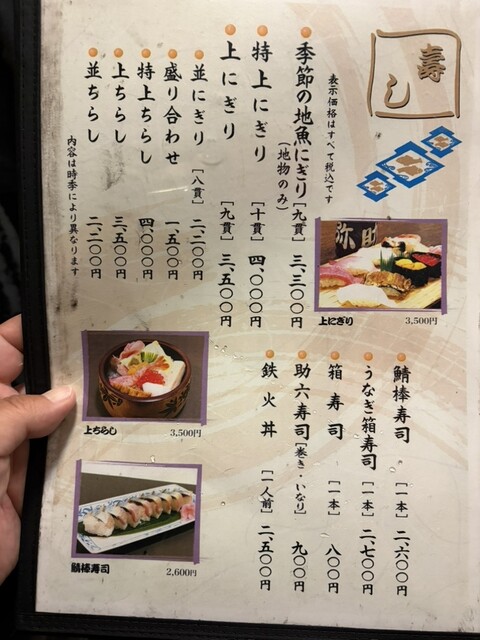 壽し
表示価格はすべて税込です
季節の地魚にぎり(地物のみ)[九貫] 三、三〇〇円
特上にぎり [十貫] 四、〇〇〇円
上にぎり [九貫] 三、五〇〇円
並にぎり [八貫] 二、二〇〇円
盛り合わせ 一、五〇〇円
特上ちらし 四、〇〇〇円
上ちらし 三、五〇〇円
並ちらし 二、二〇〇円
内容は時季により異なります
弥助
上にぎり 3,500円
鯖棒寿司 [一本] 二、六〇〇円
うなぎ箱寿司 [一本] 二、七〇〇円
箱寿司 [一本] 八〇〇円
助六寿司[巻き・いなり] 九〇〇円
鉄火丼 [一人前] 二、五〇〇円
上ちらし 3,500円
鯖棒寿司 2,600円